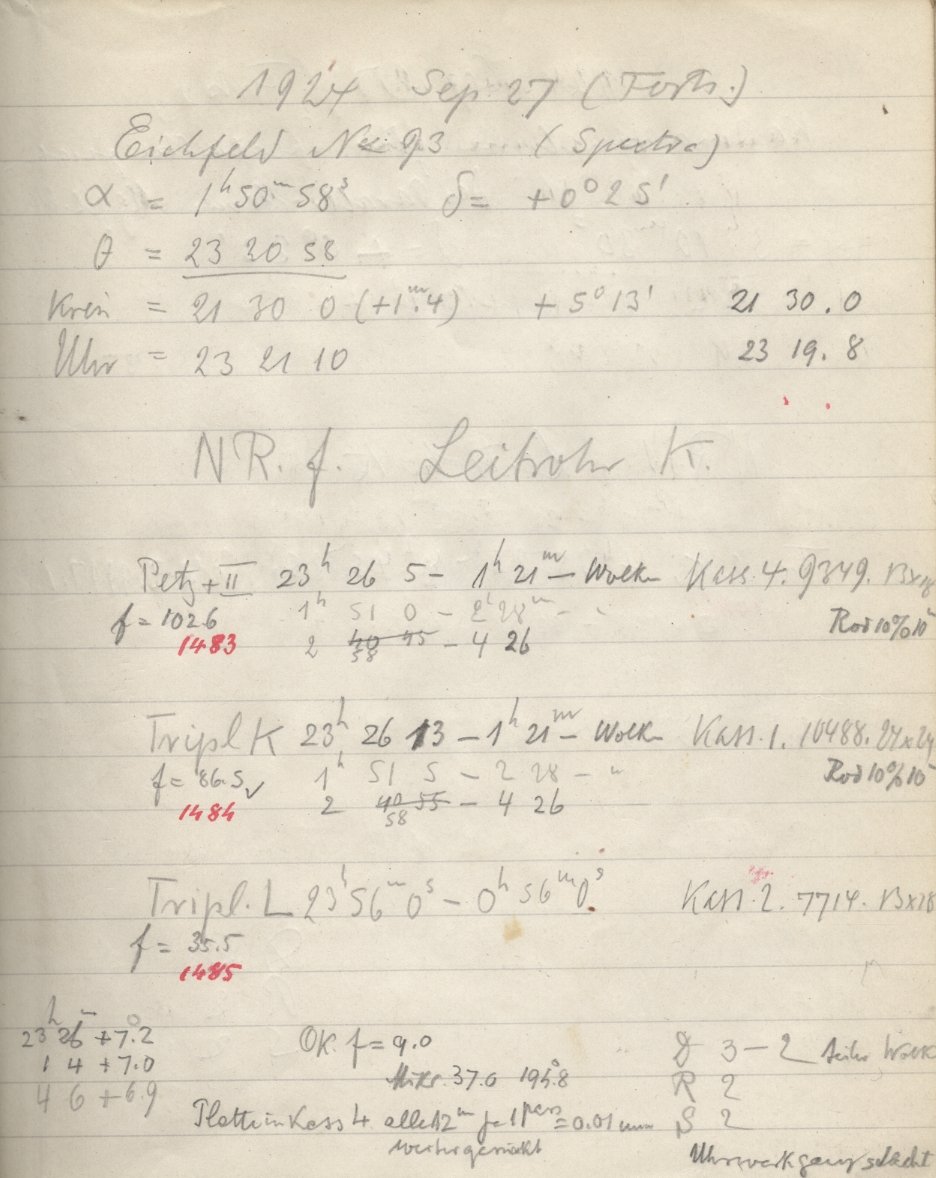 1924 Sep 27 (Forts.)
Eichfeld No 93 (Spectra)
α = 1h 50m 58s δ = +0° 25'
θ = 23 20 58
Krein = 21 30 0 (+1m.4) +5° 13' 21 30.0
Uhr = 23 21 10 23 19.8
NR. f. Leitrohr K.
Petz + II 23h 26 5 – 1h 21m – Wolk Kass. 4. 9349. 13x18
f = 1026 1h 51 0 – 2h 28m – " Rod 10% 10m
1483 2 40 45 – 4 26
58
Tripl K 23h 26 13 – 1h 21m – Wolk Kass. 1. 10488. 24x24
f = 86.5 ✓ 1h 51 5 – 2 28 – " Rod 10% 10m
1484 2 40 55 – 4 26
58
Tripl. L 23h 56m 0s – 0h 56m 0s. Kass. 2. 7714. 13x18
f = 35.5
1485
23h 26m +7.°2 OK. f = 9.0 D 3–2 Wolk
1 4 +7.0 Mikr. 37.6 R 2
4 6 +6.9
Platte in Kass 4 alle 12m je 1 pars = 0.01 mm S 2
weitergerückt Uhrwerk ganz schlecht